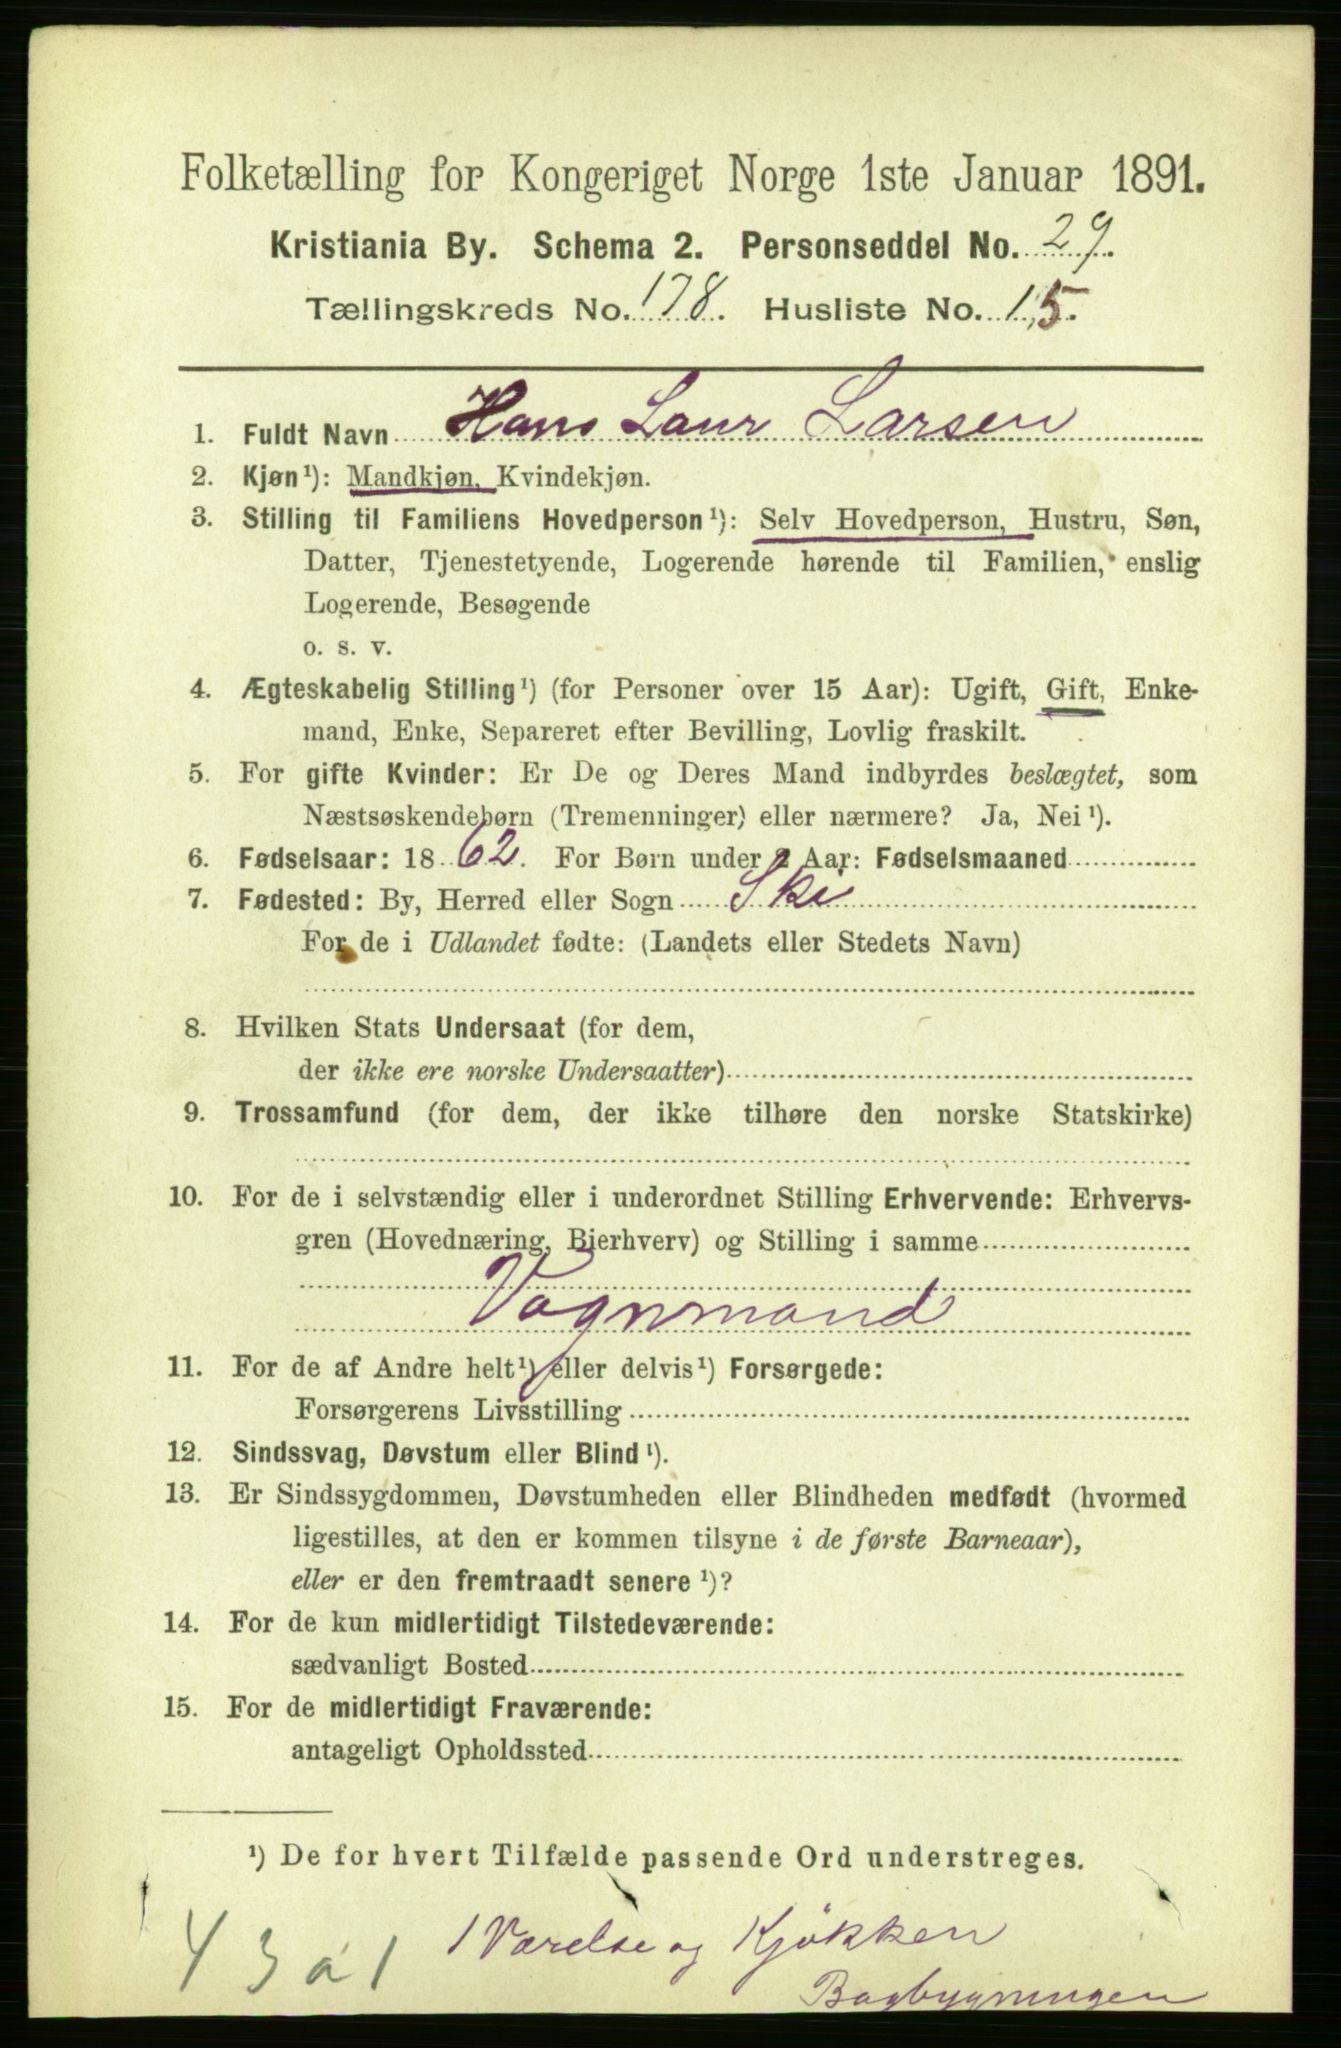 Folketælling for Kongeriget Norge 1ste Januar 1891.
Kristiania By. Schema 2. Personseddel No. 29.
Tællingskreds No. 178. Husliste No. 15.
1. Fuldt Navn Hans Laur Larsen
2. Kjøn¹): Mandkjøn, Kvindekjøn.
3. Stilling til Familiens Hovedperson¹): Selv Hovedperson, Hustru, Søn,
Datter, Tjenestetyende, Logerende hørende til Familien, enslig
Logerende, Besøgende
o. s. v.
4. Ægteskabelig Stilling¹) (for Personer over 15 Aar): Ugift, Gift, Enke-
mand, Enke, Separeret efter Bevilling, Lovlig fraskilt.
5. For gifte Kvinder: Er De og Deres Mand indbyrdes beslægtet, som
Næstsøskendebørn (Tremenninger) eller nærmere? Ja, Nei¹).
6. Fødselsaar: 18 62. For Børn under 2 Aar: Fødselsmaaned
7. Fødested: By, Herred eller Sogn Ski
For de i Udlandet fødte: (Landets eller Stedets Navn)
8. Hvilken Stats Undersaat (for dem,
der ikke ere norske Undersaatter)
9. Trossamfund (for dem, der ikke tilhøre den norske Statskirke)
10. For de i selvstændig eller i underordnet Stilling Erhvervende: Erhvervs-
gren (Hovednæring, Bierhverv) og Stilling i samme
Vognmand
11. For de af Andre helt¹) eller delvis¹) Forsørgede:
Forsørgerens Livsstilling
12. Sindssvag, Døvstum eller Blind¹).
13. Er Sindssygdommen, Døvstumheden eller Blindheden medfødt (hvormed
ligestilles, at den er kommen tilsyne i de første Barneaar),
eller er den fremtraadt senere¹)?
14. For de kun midlertidigt Tilstedeværende:
sædvanligt Bosted
15. For de midlertidigt Fraværende:
antageligt Opholdssted
¹) De for hvert Tilfælde passende Ord understreges.
4 3 a 1 1 Værelse og Kjøkken
Bagbygningen